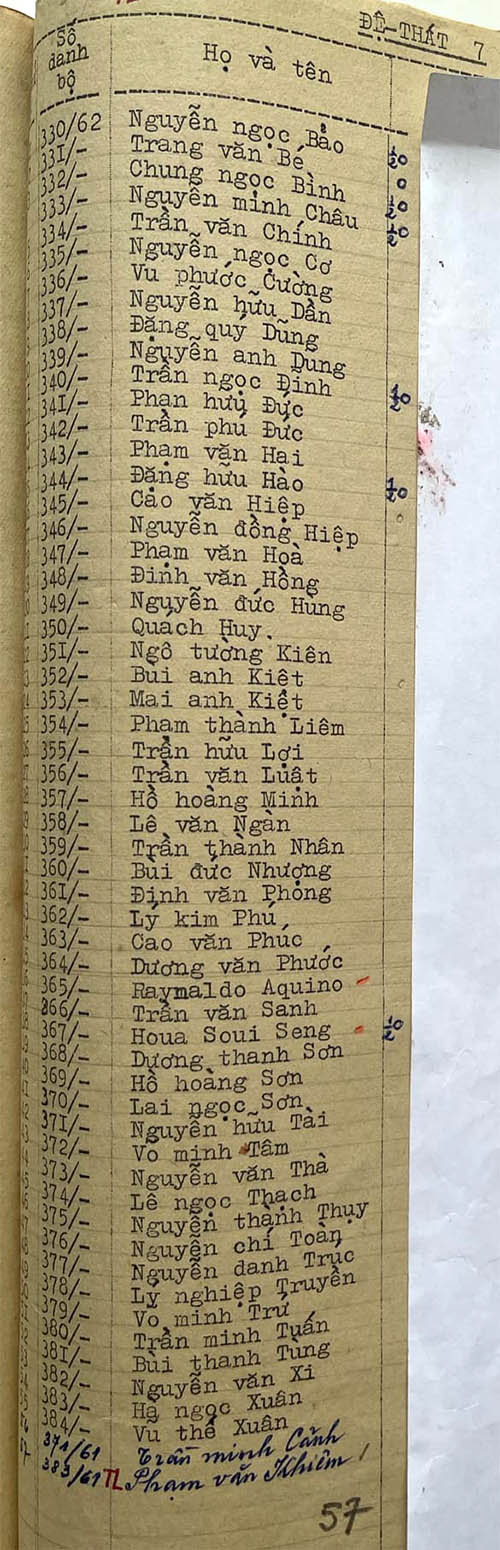 ĐỆ-THẤT 7
Số danh bộ Họ và tên
330/62 Nguyễn ngọc Bảo
331/- Trang văn Bé ½0
332/- Chung ngọc Bình 0
333/- Nguyễn minh Châu ½0
334/- Trần văn Chính ½0
335/- Nguyễn ngọc Cơ
336/- Vu phước Cường
337/- Nguyễn hữu Dần
338/- Đặng quý Dũng
339/- Nguyễn anh Dung
340/- Trần ngọc Đinh
341/- Phan hưũ Đức ½0
342/- Trần phú Đưc
343/- Phạm văn Hai
344/- Đặng hữu Hào
345/- Cao văn Hiệp ½0
346/- Nguyễn đồng Hiệp
347/- Phạm văn Hoà
348/- Đinh văn Hồng
349/- Nguyễn đức Hùng
350/- Quách Huy.
351/- Ngô tường Kiên
352/- Bùi anh Kiệt
353/- Mai anh Kiệt
354/- Phạm thành Liêm
355/- Trần hữu Lợi
356/- Trần văn Luật
357/- Hồ hoàng Minh
358/- Lê văn Ngàn
359/- Trần thành Nhân
360/- Bùi đức Nhượng
361/- Định văn Phong
362/- Lý kim Phú
363/- Cao văn Phúc
364/- Dương văn Phước
365/- Raymaldo Aquino
366/- Trần văn Sanh
367/- Houa Soui Seng ½0
368/- Dương thanh Sơn
369/- Hồ hoàng Sơn
370/- Lai ngọc Sơn
371/- Nguyễn hữu Tài
372/- Vo minh Tâm
373/- Nguyễn văn Thà
374/- Lê ngọc Thạch
375/- Nguyễn thành Thụy
376/- Nguyễn chí Toàn
377/- Nguyễn danh Trục
378/- Ly nghiệp Truyền
379/- Vo minh Trứ
380/- Trần minh Tuấn
381/- Bùi thanh Tùng
382/- Nguyễn văn Xi
383/- Hạ ngọc Xuân
384/- Vũ thế Xuân
371/61 Trần minh Cảnh
383/61 TL Phạm văn Khiêm
57